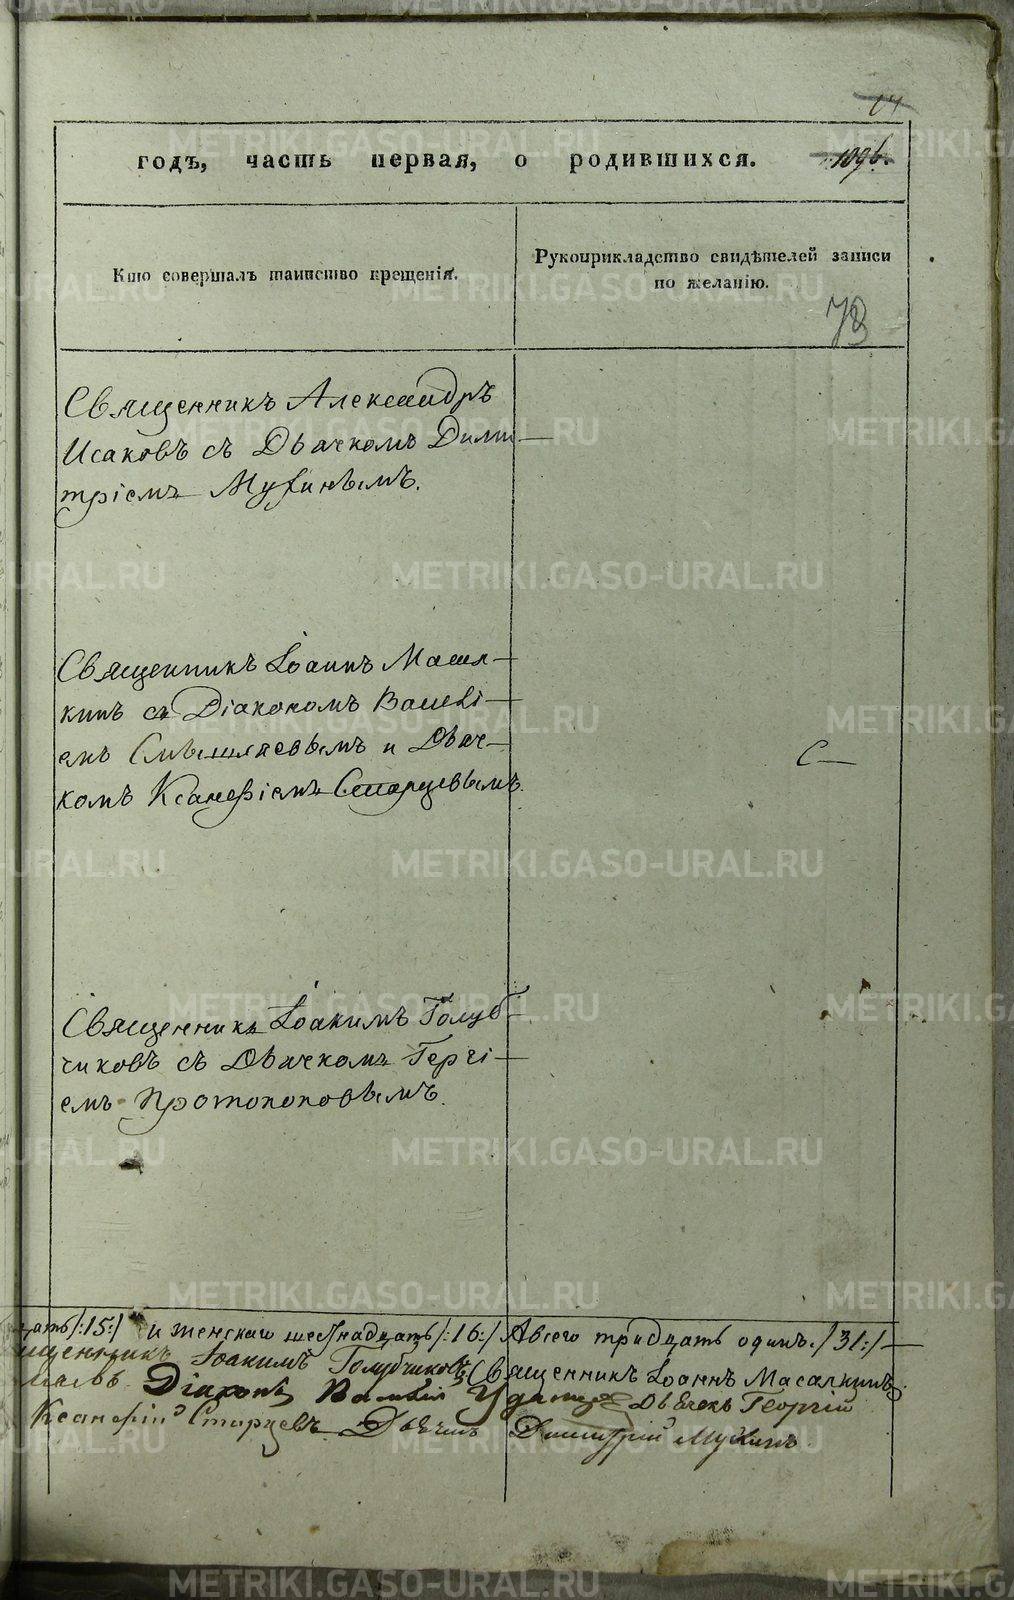 годъ, часть первая, о родившихся.
Кто совершалъ таинство крещенія.
Рукоприкладство свидѣтелей записи
по желанію.
78
Священникъ Александръ
Исаковъ съ Дьячкомъ Дими-
тріемъ Мухинымъ.
Священникъ Іоаннъ Масал-
кинъ съ Діакономъ
емъ и Дьяч-
комъ Ксанфіемъ Старцевымъ.
С—
Священникъ Іоакимъ Голуб-
чиковъ съ Дьячкомъ Гергі-
емъ Протопоповымъ.
цать/:15:/ и женскаго шестнадцать/:16:/ А всего тридцать одинъ./31:/—
щенникъ Іоакимъ Голубчиковъ Священникъ Іоаннъ Масалкинъ
Діаконъ Дьячекъ Георгій
Старцевъ Димитрій Мухинъ
METRIKI.GASO-URAL.RU